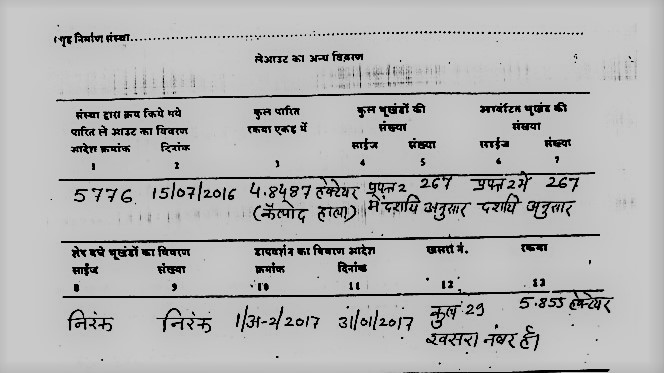 गृह निर्माण संस्था
लेआउट का अन्य विवरण
संस्था द्वारा क्रय किये गये कुल पारित कुल भूखंडों की आवंटित भूखंड की
पारित ले आउट का विवरण रकवा एकड़ में संख्या संख्या
आदेश क्रमांक दिनांक साईज संख्या साईज संख्या
1 2 3 4 5 6 7
5776 15/07/2016 4.8487 हेक्टेयर प्रपत्र 2 267 प्रपत्र 2 में 267
हाला) में दर्शाये अनुसार दर्शाये अनुसार
शेष बचे भूखंडों का विवरण डायवर्शन का विवरण आदेश खसरा नं. रकवा
साईज संख्या क्रमांक दिनांक
8 9 10 11 12 13
निरंक निरंक 1/अ-2/2017 31/01/2017 कुल 29 5.855 हेक्टेयर
खसरा नंबर है।